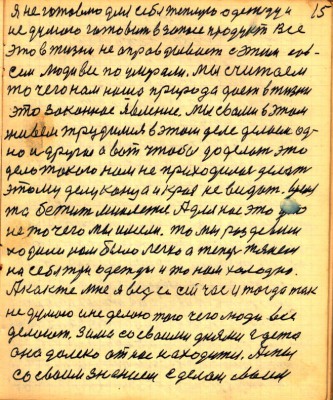 15
Я не готовлю для себя теплую одежду и
не думаю готовить в запас продукт. Все
это в жизни не оправдывает с этим
люди все поумирали. Мы считаем
то чего нам наша природа дает в жизни
это законное явление. Мы с вами в этом
живем трудимся в этом деле делаем од-
но и другое а вот чтобы доделать это
дело такого нам не приходилося делать
этому делу конца и края не видать.
та бежит миллет А для нас это
не то чего мы имеем. То мы раздевши
ходили нам было легко а теперь тянем
на себя три одежды и то нам холодно.
А как же мне я ведь и сейчас и тогда так
не думаю и не делаю того чего люди все
делают. Зима со своими днями
она далеко от нас находится. А мы
со своим знанием сделали своим